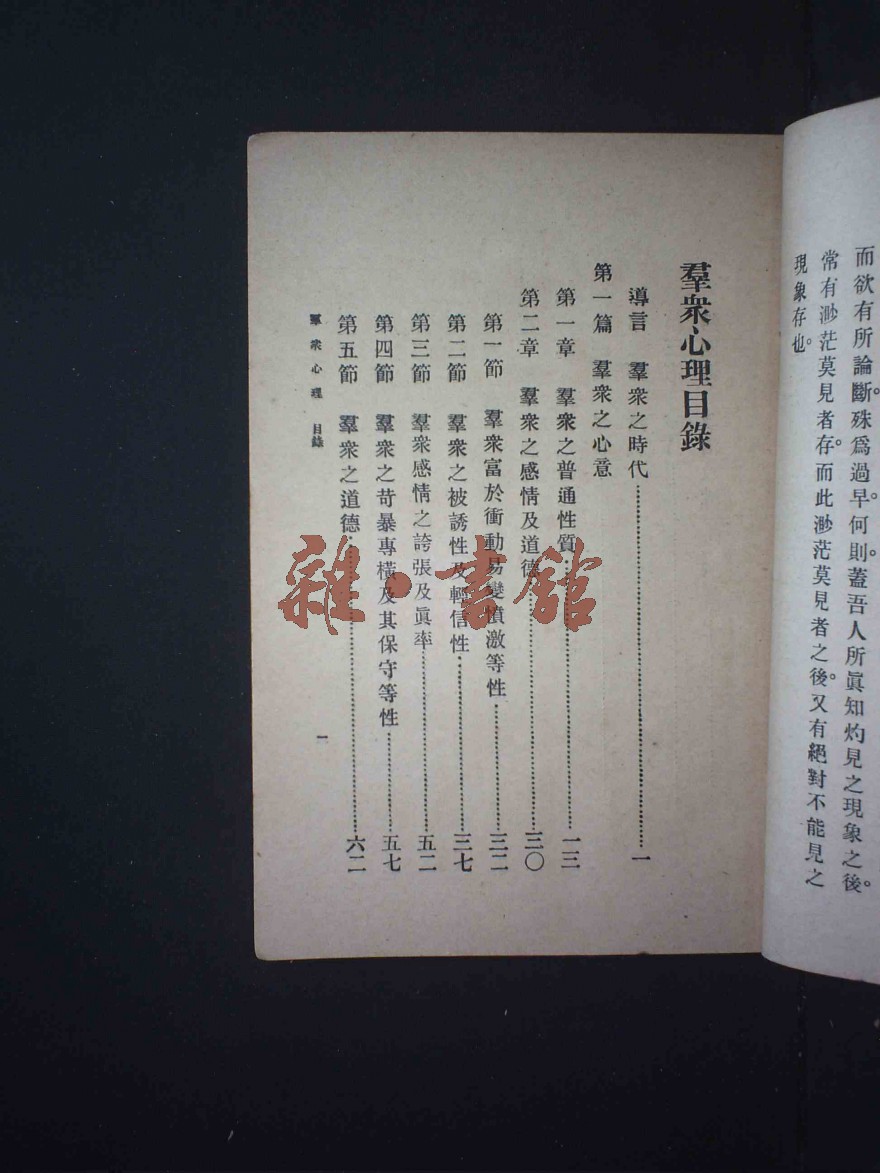 而欲有所論斷。殊爲過早。何則。蓋吾人所眞知灼見之現象之後。
常有渺茫莫見者存。而此渺茫莫見者之後。又有絕對不能見之
現象存也。
羣衆心理目錄
導言 羣衆之時代 一
第一篇 羣衆之心意
第一章 羣衆之普通性質 一三
第二章 羣衆之感情及道德 三〇
第一節 羣衆富於衝動易變憤激等性 三二
第二節 羣衆之被誘性及輕信性 三七
第三節 羣衆感情之誇張及眞率 五二
第四節 羣衆之苛暴專橫及其保守等性 五七
第五節 羣衆之道德 六二
羣衆心理 目錄
一
雜·書館